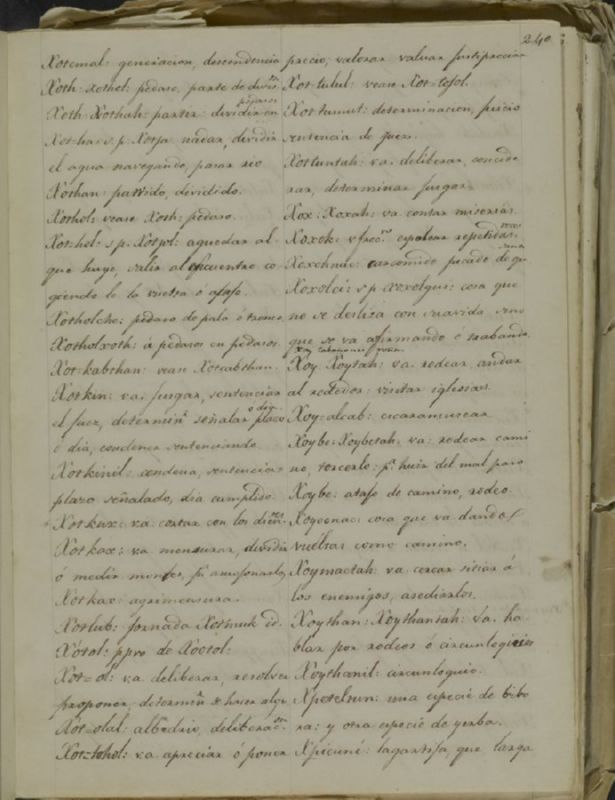 240
Xotemal: generacion, descendencia
Xoth: xothol: pedaso, parte de divis.on
Xoth. Xothah: partir: dividir en
pedasos
Xot-ha: v.p. Xotja nadar, dividir
el agua navegando, pasar rio
Xothan: partido, dividido.
Xothol: vease Xoth: pedaso.
Xot-hol: s.p. Xotpol: aquedar al
que huye, salir al encuentro co
giendo le la vuelta ó atajo.
Xotholche: pedaso de palo ó tronco
Xotholxoth: á pedasos en pedasos.
Xot-kabthan: vease Xotcabthan.
Xotkin: va. jusgar, sentenciar
el juez, determin.r señalar plaso
ó dia, condenar sentenciando.
Xotkinil: condena, sentencia
plaso señalado, dia cumplido.
Xotkux: va. cortar con los dien.tes
Xotkax: va mensurar, dividir
ó medir montes, p.a amojonarlos
Xotkax: agrimensura.
Xotlub: jornada Xotmuk id.
Xotol: p.pro de Xootol:
Xot=ol: va deliberar, resolver
proponer, determin.r de haser algo
Xot-olal: albedrio, deliberac.on
Xot=tohol: va apreciar ó poner
precio; valorar valuar justipreciar
Xot-tulul: vease Xot-tohol.
Xot tumut: determinacion, juicio
sentencia de juez.
Xottuntah: va. deliberar, conside
rar, determinar jusgar
Xox: Xoxah: va contar miserias.
Xoxok: v frec.o
repetidas
veces
Xoxchaac: carcomido picado de gu
sano
Xoxolci: v p xoxolqui: cosa que
no se desliza con suavidad, sino
que se va afirmando ó trabando.
Xoy Xoytah: va. rodear, andar
al rededor: visitar iglesias.
Xoy-alcab: escaramusear
Xoybe: Xoybetah: va: rodear cami
no, torcerlo: p.a huir del mal paso
Xoybe: atajo de camino, rodeo.
Xoyocnac: cosa que va dando
vueltas como camino.
Xoymactah: va cercar sitiar á
los enemigos, asediarlos.
Xoythan: Xoythantah: va. ha
blar por rodeos ó circunloquios
Xoythanil: circunloquio.
Xpotelsun: una especie de bibo
ra: y otra especie de yerba.
Xpicuni: lagartija, que larga